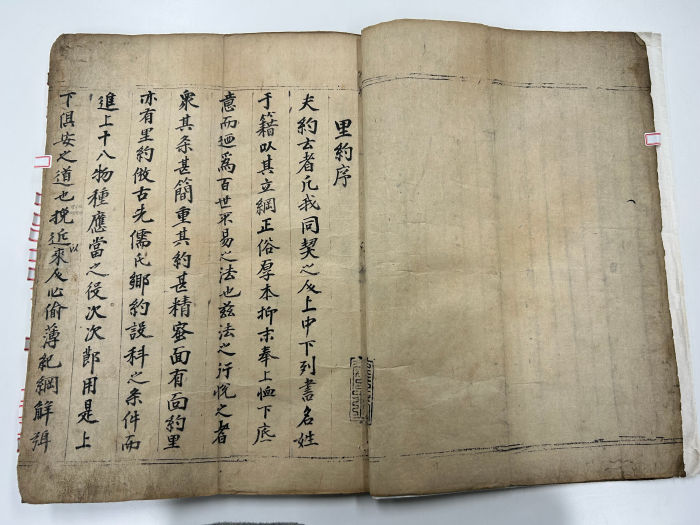 里約序
夫約云者凡我同契之民上中下列書名姓
于籍以其立綱正俗厚本抑末奉上恤下底
意而廼爲百世不易之法也兹法之行悅之者
衆其条甚簡重其約甚精密面有面約里
亦有里約倣古先儒氏鄉約設科之条件而
進上十八物種應當之役次次鄭用是上
下俱安之道也挽近以來民心偷薄紀綱解弛